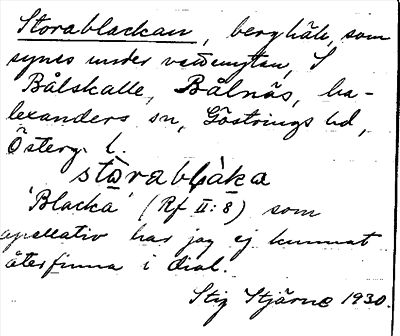 Storablackan, berghäll, som
synes under vattenytan, S
Bålskalle, Bålnäs, ha-
lexanders sn, Göstrings hd,
Österg. l.
stòrabḷàka
'Blacka' (Rf II:8) som
apellativ har jag ej kunnat
återfinna i dial.
Stig Stjärne 1930.